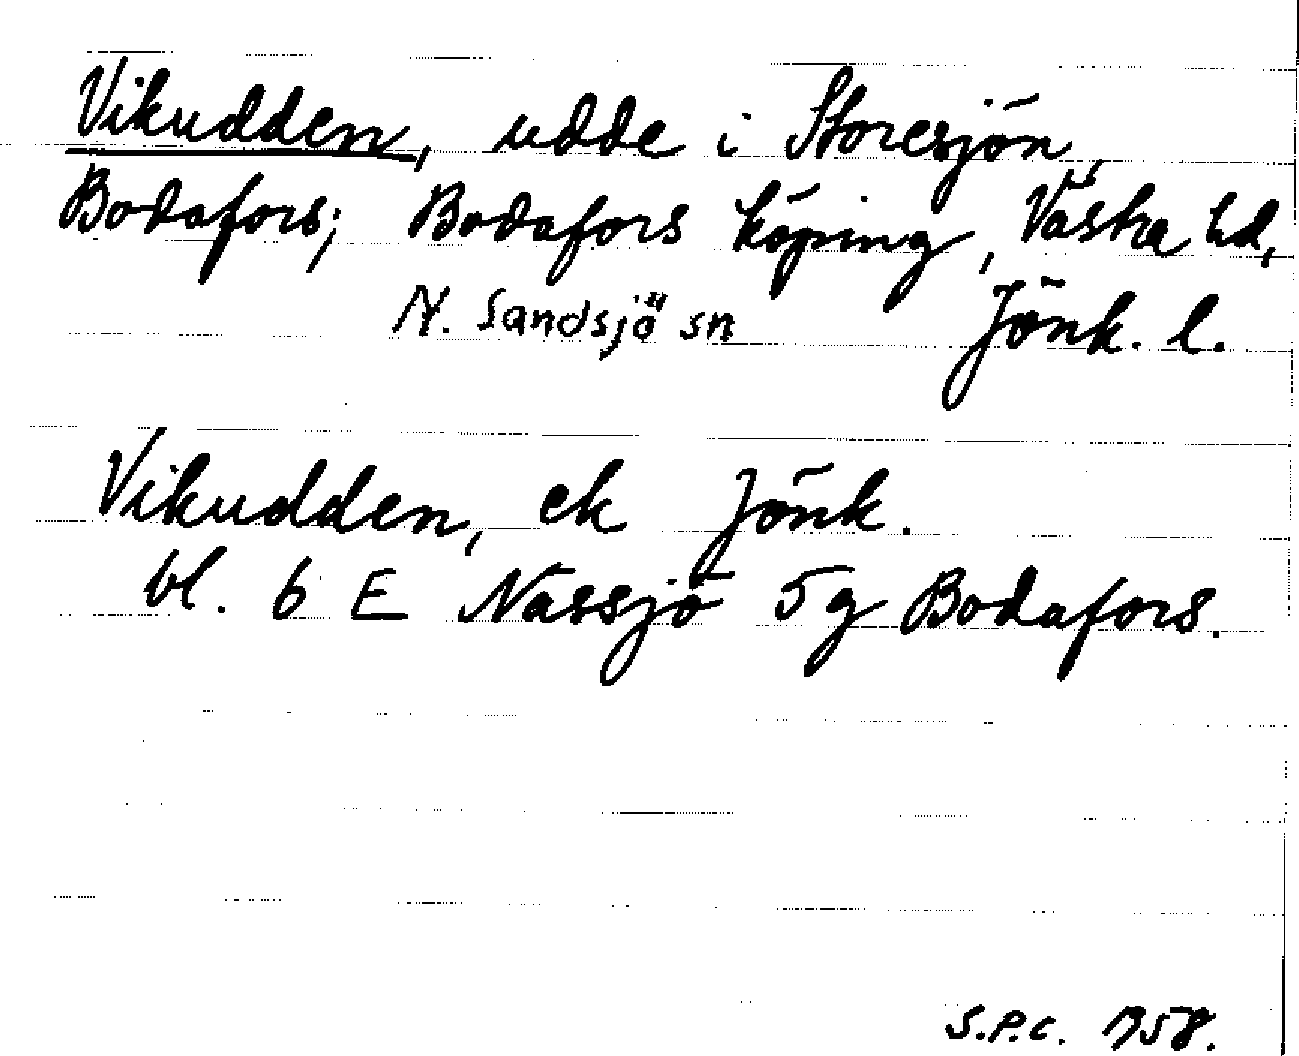 Vikudden, udde i Storesjön,
Bodafors; Bodafors köping, Västra hd,
N. Sandsjö sn Jönk. l.
Vikudden, ek Jönk.
bl. 6 E Nässjö 5 g Bodafors.
S.P.C. 1958.